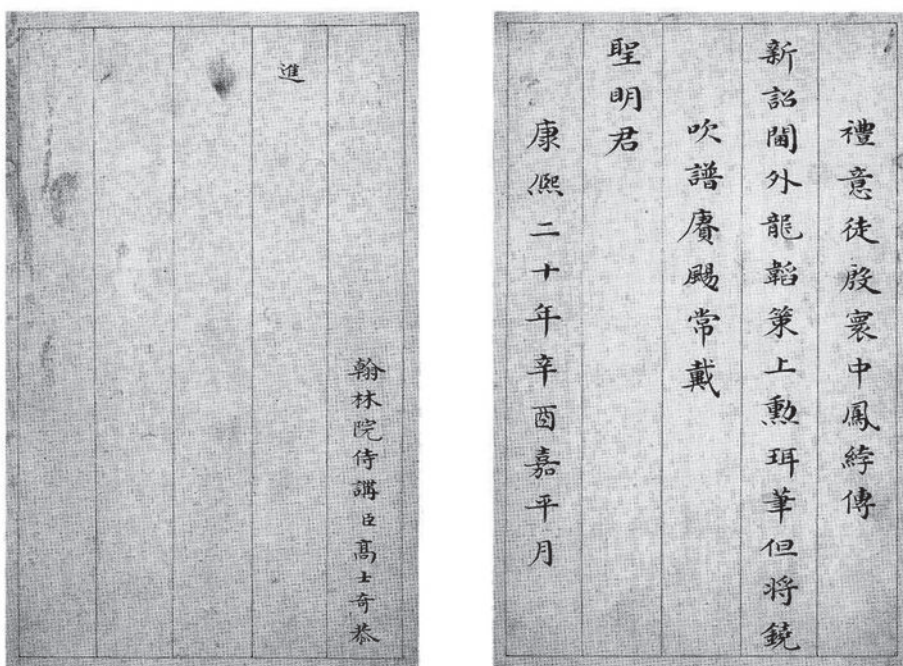 禮意徒殷寰中鳳綍傳
新詔閫外龍韜策上勲珥筆但將鐃
吹譜賡颺常戴
聖明君
康熙二十年辛酉嘉平月
翰林院侍講臣高士奇恭
進